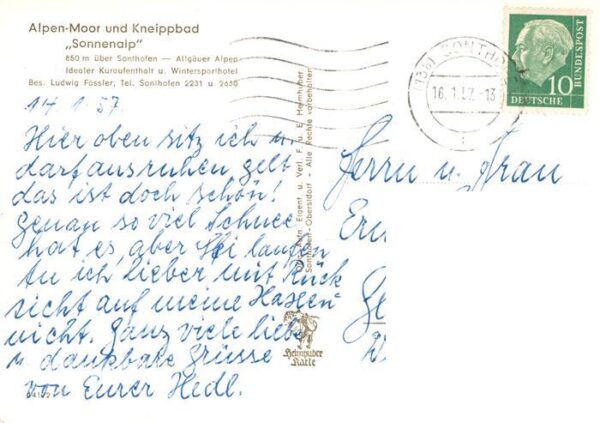 Alpen-Moor und Kneippbad
„Sonnenalp"
850 m über Sonthofen — Allgäuer Alpen
Idealer Kuraufenthalt u. Wintersporthotel
Bes. Ludwig Fässler, Tel. Sonthofen 2231 u. 2630
14.1.57.
Hier oben sitz ich u.
darf ausruhen, gelt
das ist doch schön!
Genau so viel Schnee
hat es, aber Ski laufen
tu ich lieber mit Rück
sicht auf meine Haxen
nicht. Ganz viele liebe
u. dankbare Grüsse
von Eurer Hedl.
Eigent. u. Verl. F. u. E. Heimhuber
Sonthofen-Oberstdorf - Alle Rechte vorbehalten
Heimhuber
Karte
16.1.57.-13
10
DEUTSCHE
BUNDESPOST
Herrn u. Frau